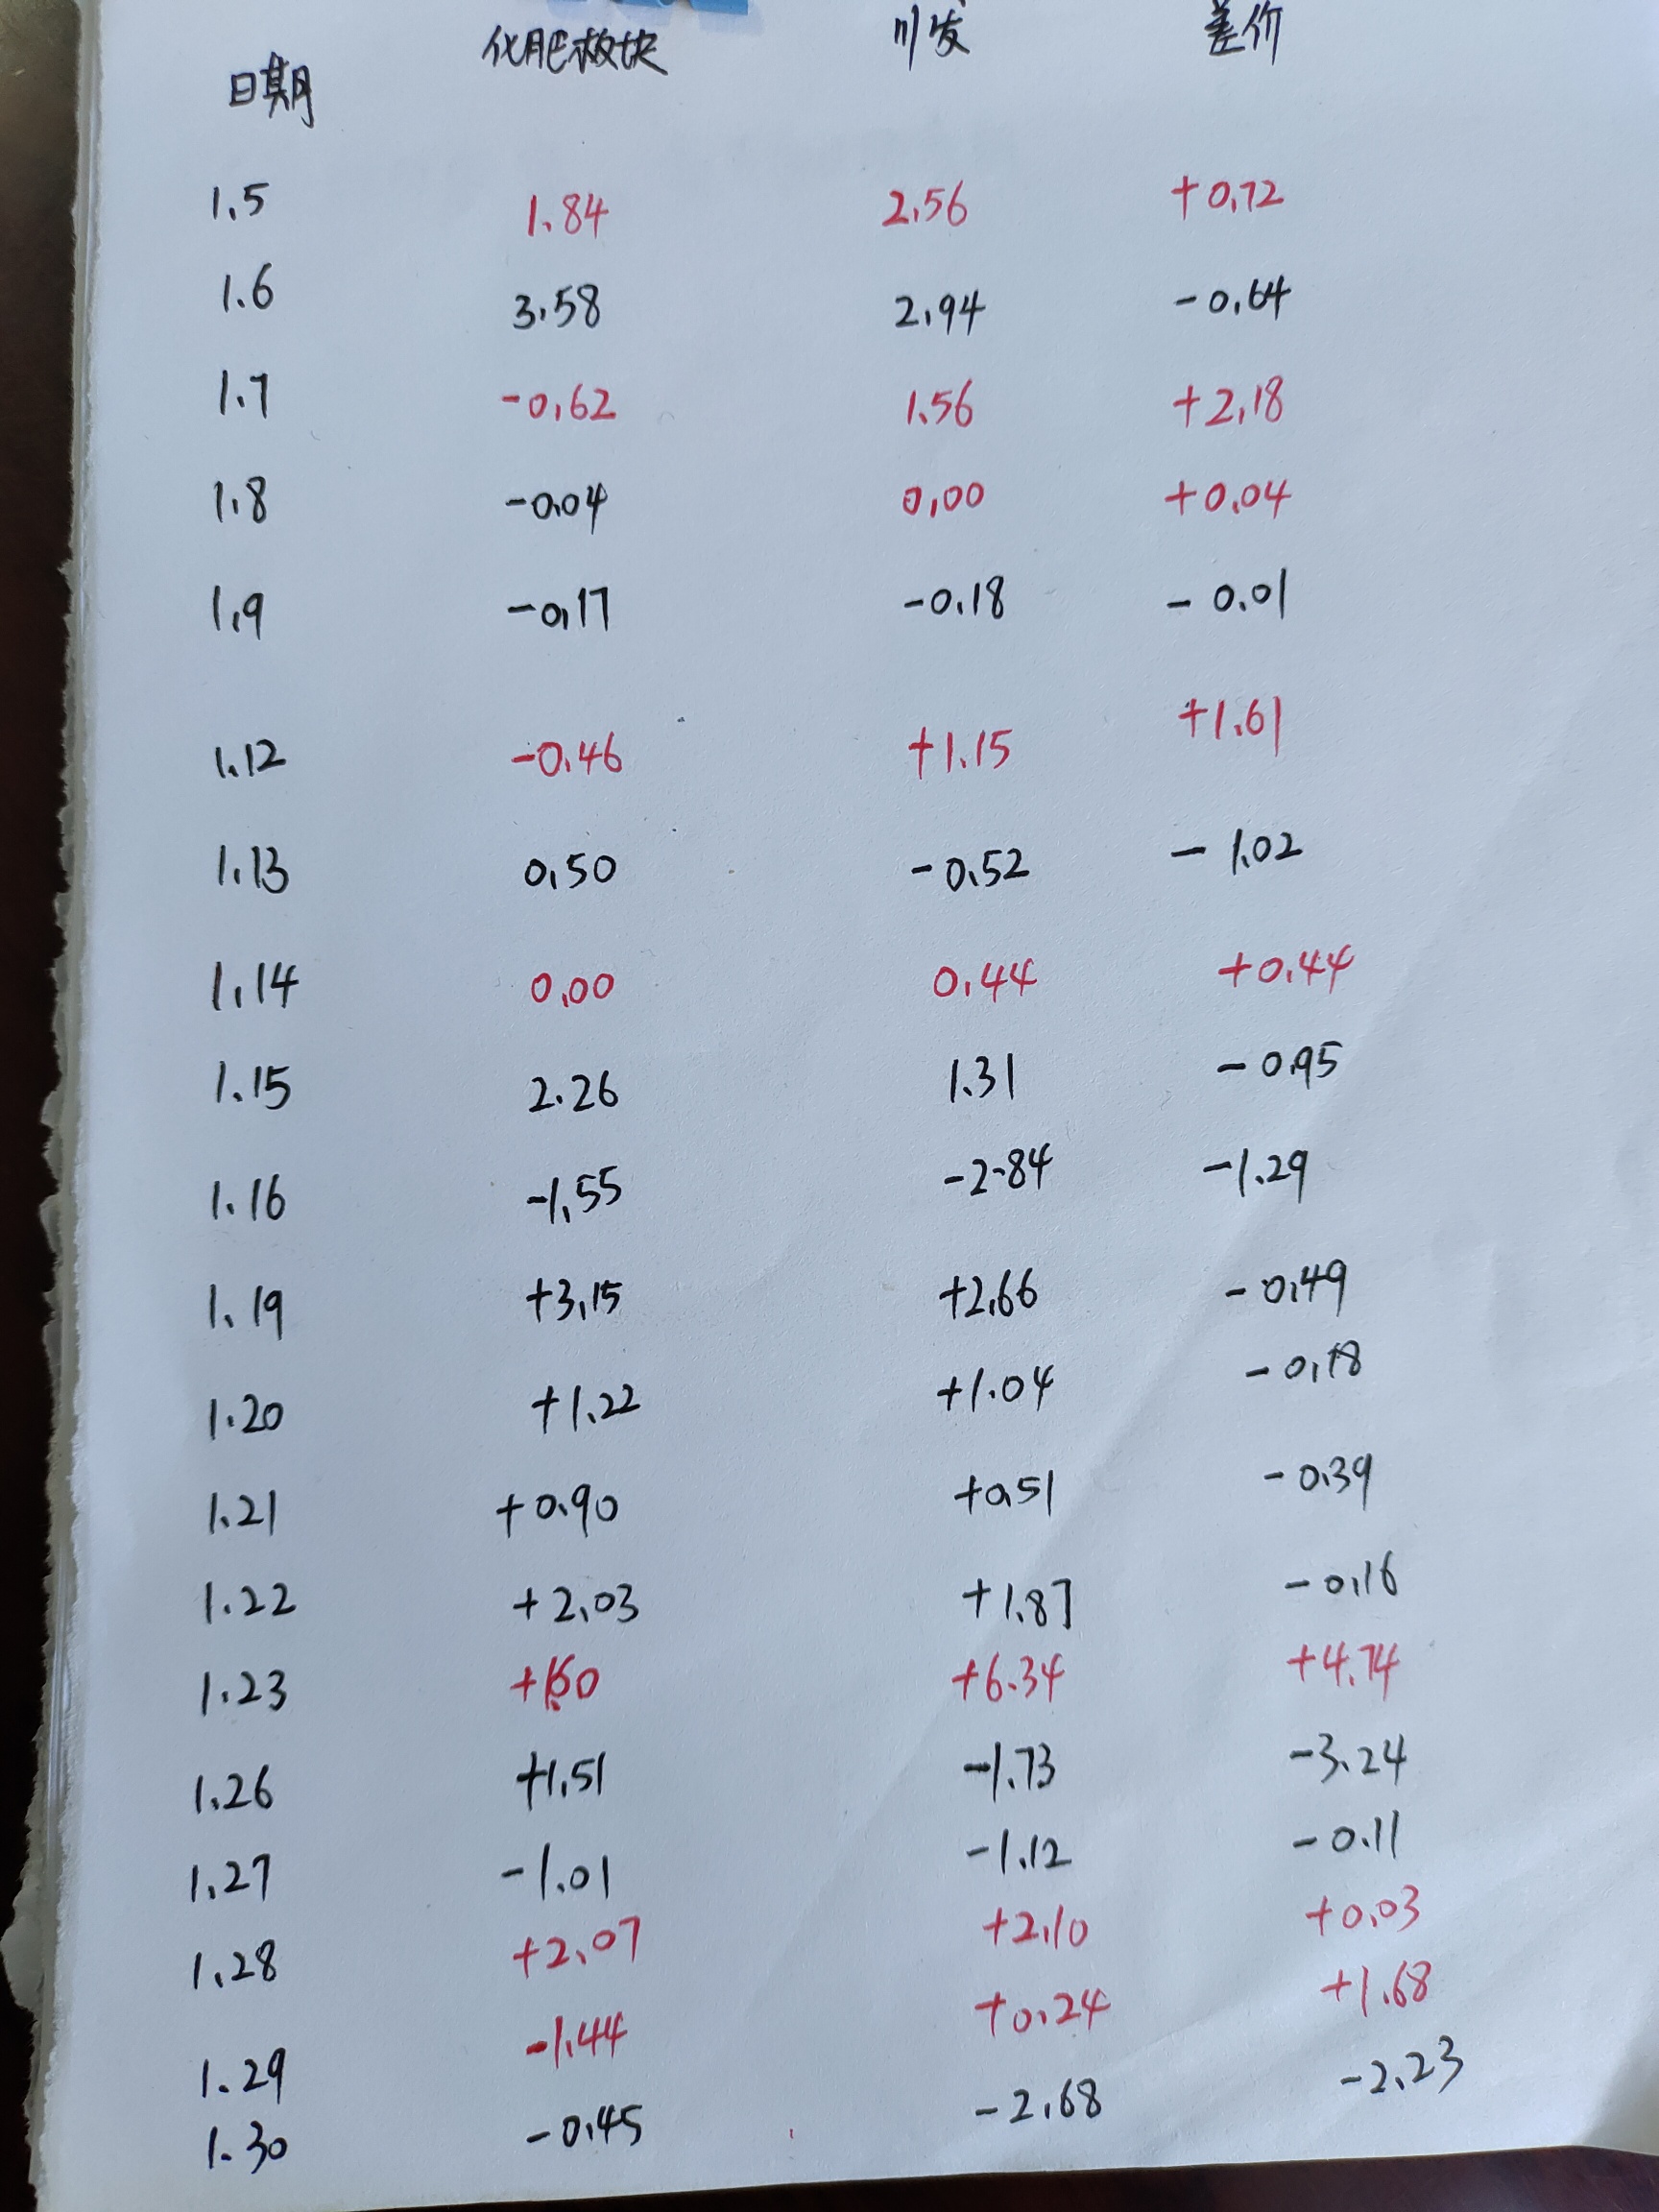 日期 化肥板块 川发 差价
1.5 1.84 2.56 +0.72
1.6 3.58 2.94 -0.64
1.7 -0.62 1.56 +2.18
1.8 -0.04 0.00 +0.04
1.9 -0.17 -0.18 -0.01
1.12 -0.46 +1.15 +1.61
1.13 0.50 -0.52 -1.02
1.14 0.00 0.44 +0.44
1.15 2.26 1.31 -0.95
1.16 -1.55 -2.84 -1.29
1.19 +3.15 +2.66 -0.49
1.20 +1.22 +1.04 -0.18
1.21 +0.90 +0.51 -0.39
1.22 +2.03 +1.87 -0.16
1.23 +1.60 +6.34 +4.74
1.26 +1.51 -1.73 -3.24
1.27 -1.01 -1.12 -0.11
1.28 +2.07 +2.10 +0.03
1.29 -1.44 +0.24 +1.68
1.30 -0.45 -2.68 -2.23